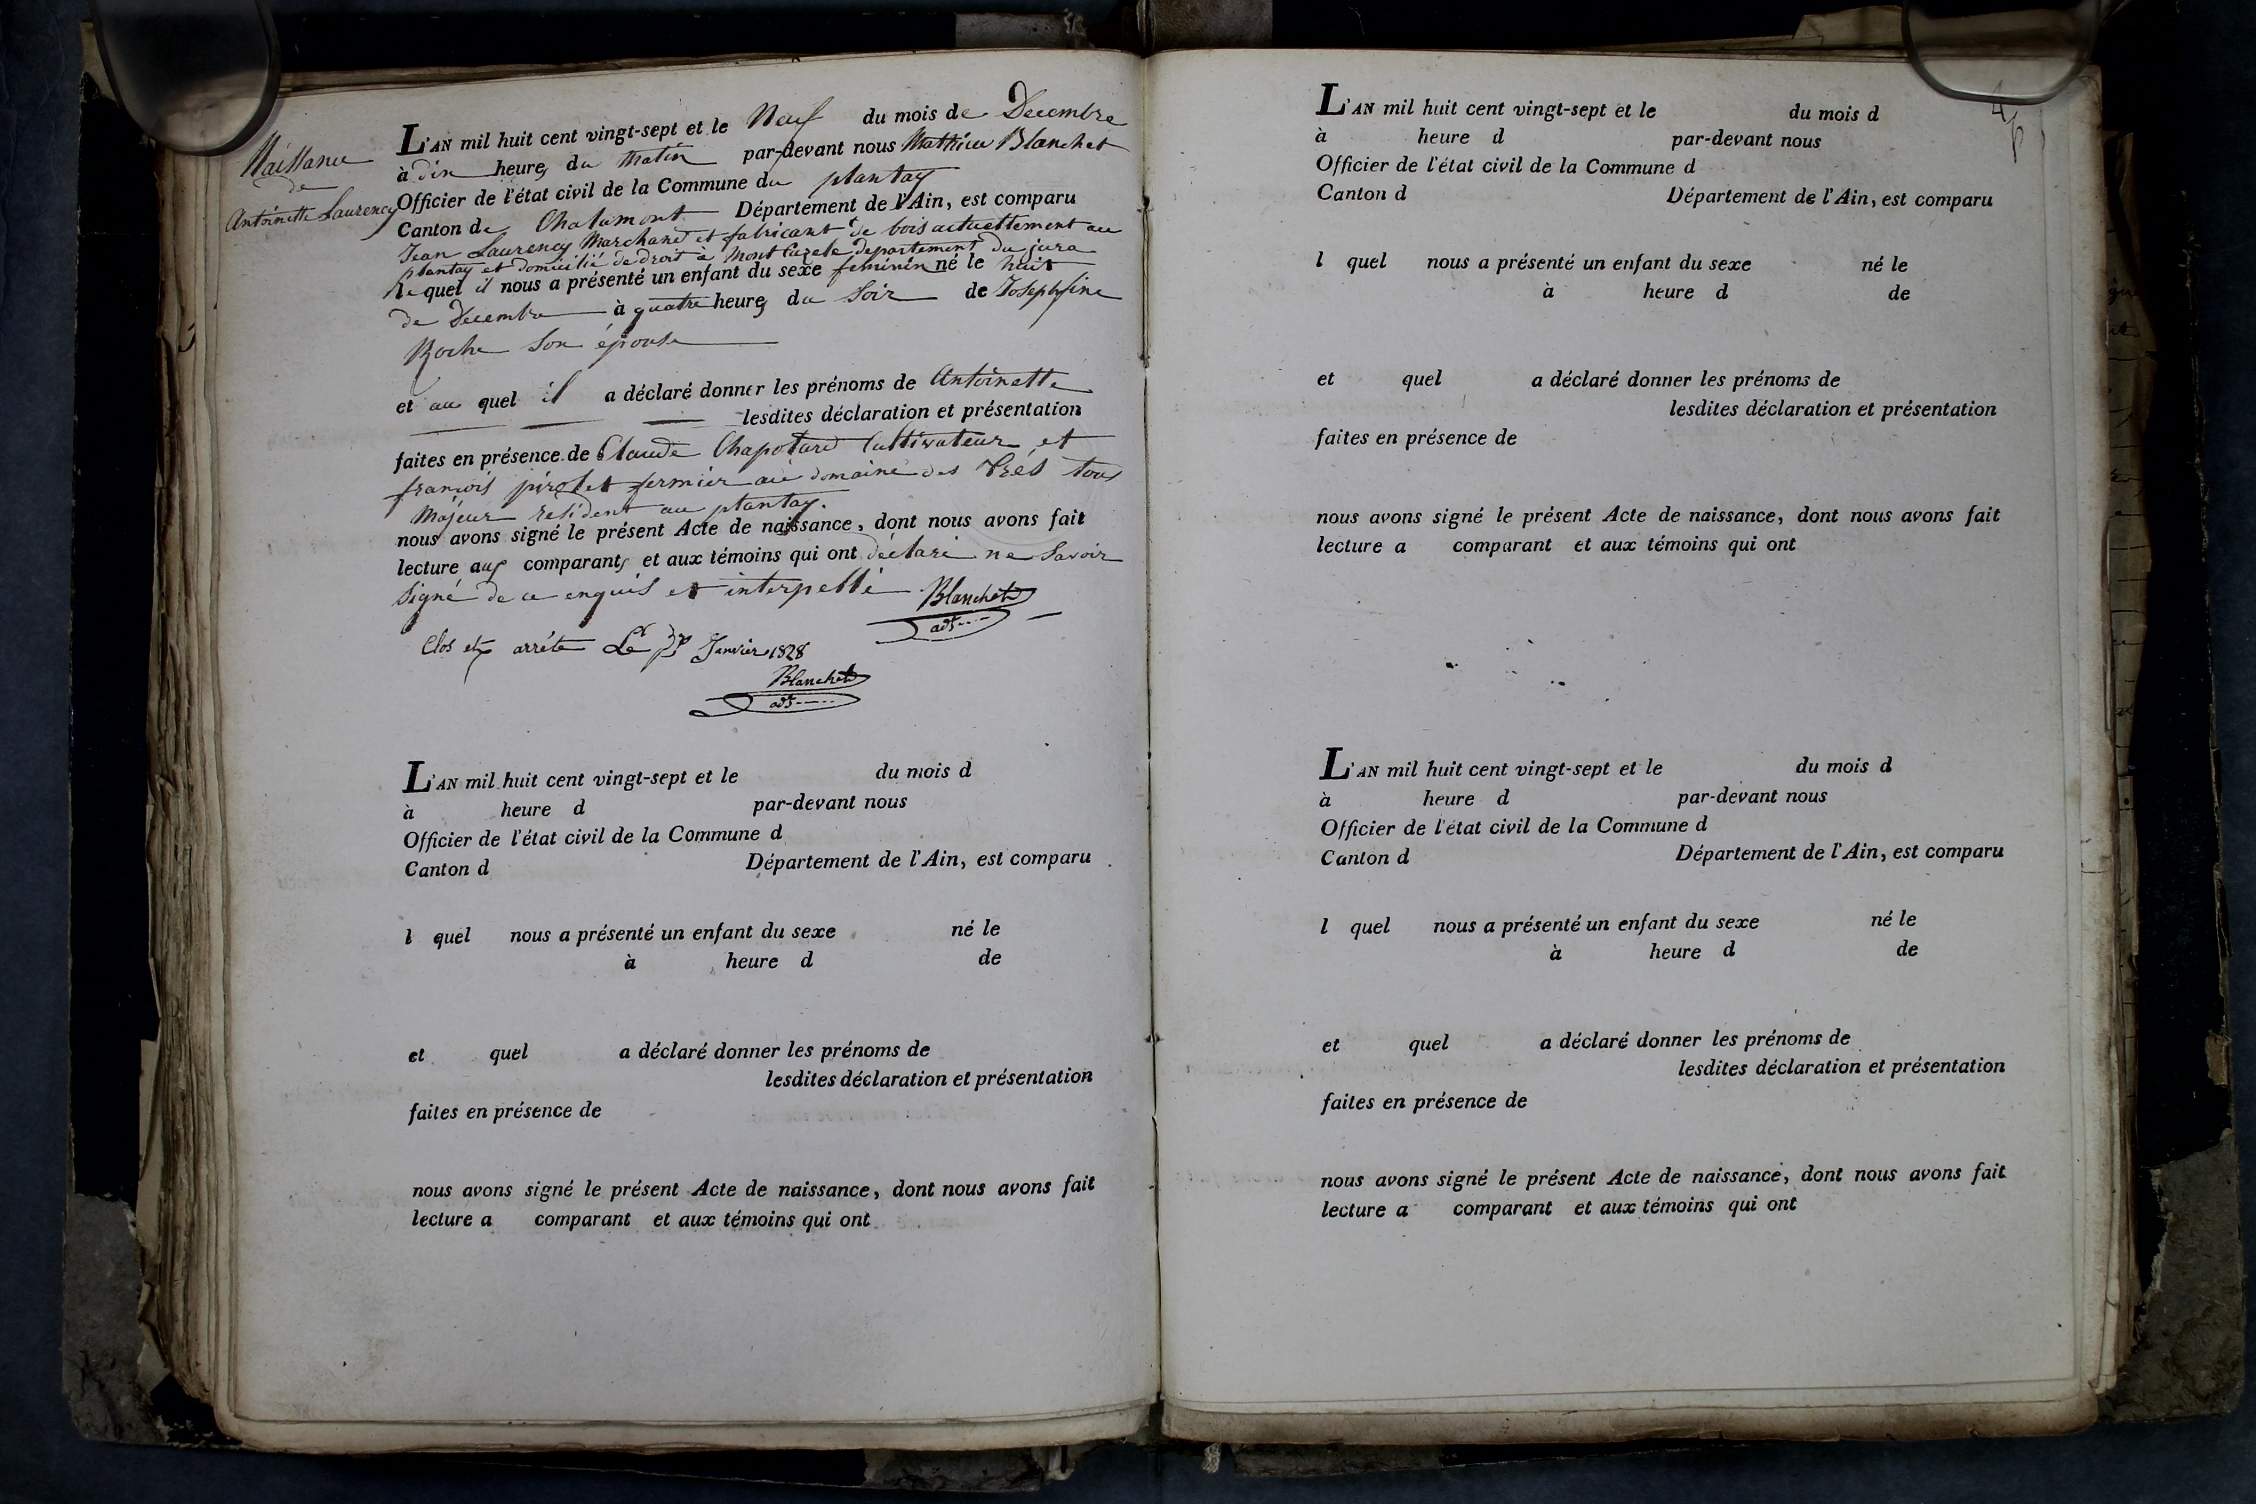 Naissance
de
Antoinette Laurency
L'AN mil huit cent vingt-sept et le Neuf du mois de Decembre
à dix heures du Matin par-devant nous Mathieu Blanchet
Officier de l'état civil de la Commune du plantay
Canton de Chalamont Département de l'Ain, est comparu
Jean Laurency Marchand et fabricant de bois actuellement au
plantay et domicilié de droit à departement du jura
lequel il nous a présenté un enfant du sexe feminin né le huit
de Decembre à quatre heures du Soir de Josephine
Roche Son épouse
et au quel il a déclaré donner les prénoms de Antoinette
lesdites déclaration et présentation
faites en présence de Claude Chapotard Cultivateur et
françois pirolet fermier au domaine des tous
Majeur resident au plantay.
nous avons signé le présent Acte de naissance, dont nous avons fait
lecture aux comparants et aux témoins qui ont déclaré ne Savoir
Signé de ce enquis et interpellé Blanchet
adt
Clos et arrété Le Janvier 1828
Blanchet
adt
L'AN mil huit cent vingt-sept et le du mois d
à heure d par-devant nous
Officier de l'état civil de la Commune d
Canton d Département de l'Ain, est comparu
l quel nous a présenté un enfant du sexe né le
à heure d de
et quel a déclaré donner les prénoms de
lesdites déclaration et présentation
faites en présence de
nous avons signé le présent Acte de naissance, dont nous avons fait
lecture a comparant et aux témoins qui ont
L'AN mil huit cent vingt-sept et le du mois d
à heure d par-devant nous
Officier de l'état civil de la Commune d
Canton d Département de l'Ain, est comparu
l quel nous a présenté un enfant du sexe né le
à heure d de
et quel a déclaré donner les prénoms de
lesdites déclaration et présentation
faites en présence de
nous avons signé le présent Acte de naissance, dont nous avons fait
lecture a comparant et aux témoins qui ont
L'AN mil huit cent vingt-sept et le du mois d
à heure d par-devant nous
Officier de l'état civil de la Commune d
Canton d Département de l'Ain, est comparu
l quel nous a présenté un enfant du sexe né le
à heure d de
et quel a déclaré donner les prénoms de
lesdites déclaration et présentation
faites en présence de
nous avons signé le présent Acte de naissance, dont nous avons fait
lecture a comparant et aux témoins qui ont